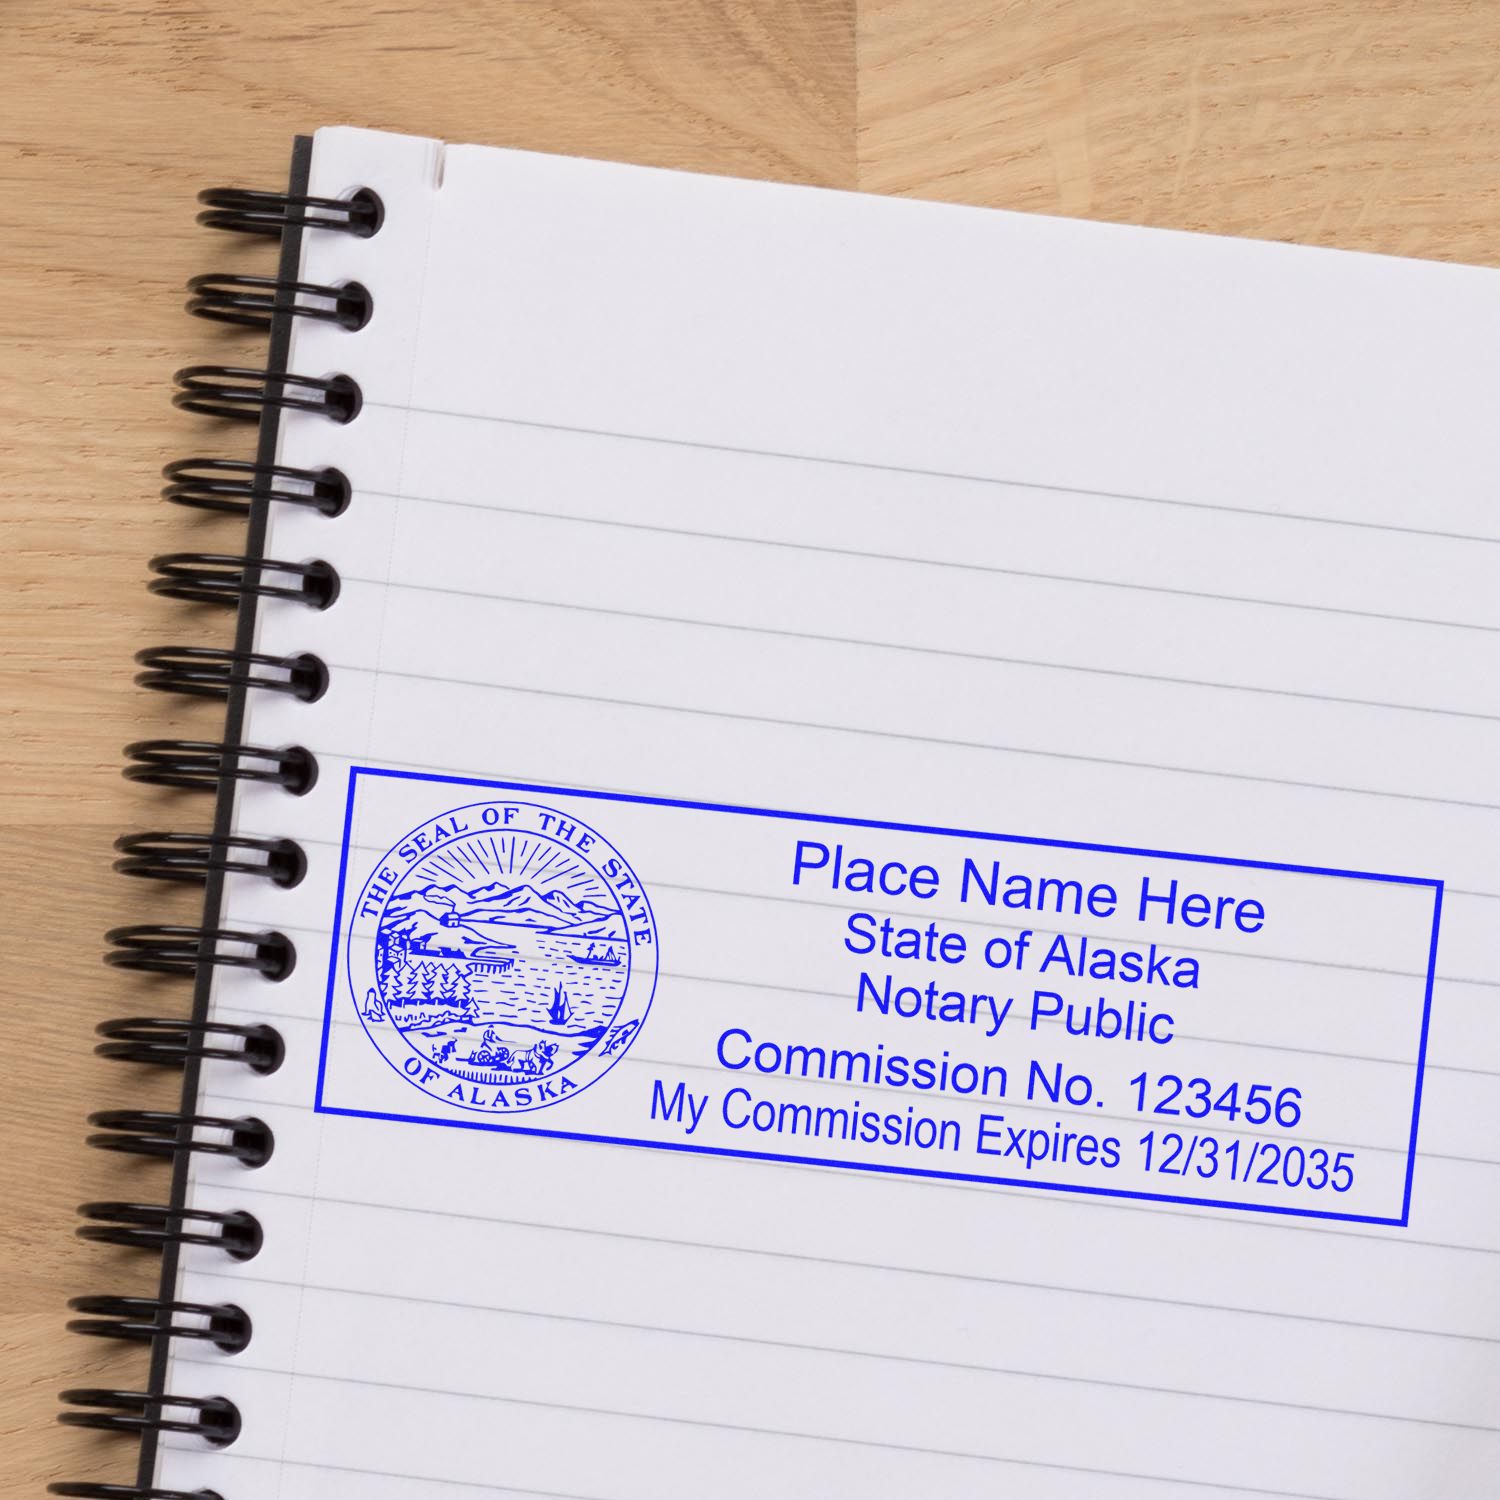 THE SEAL OF THE STATE
OF ALASKA
Place Name Here
State of Alaska
Notary Public
Commission No. 123456
My Commission Expires 12/31/2035